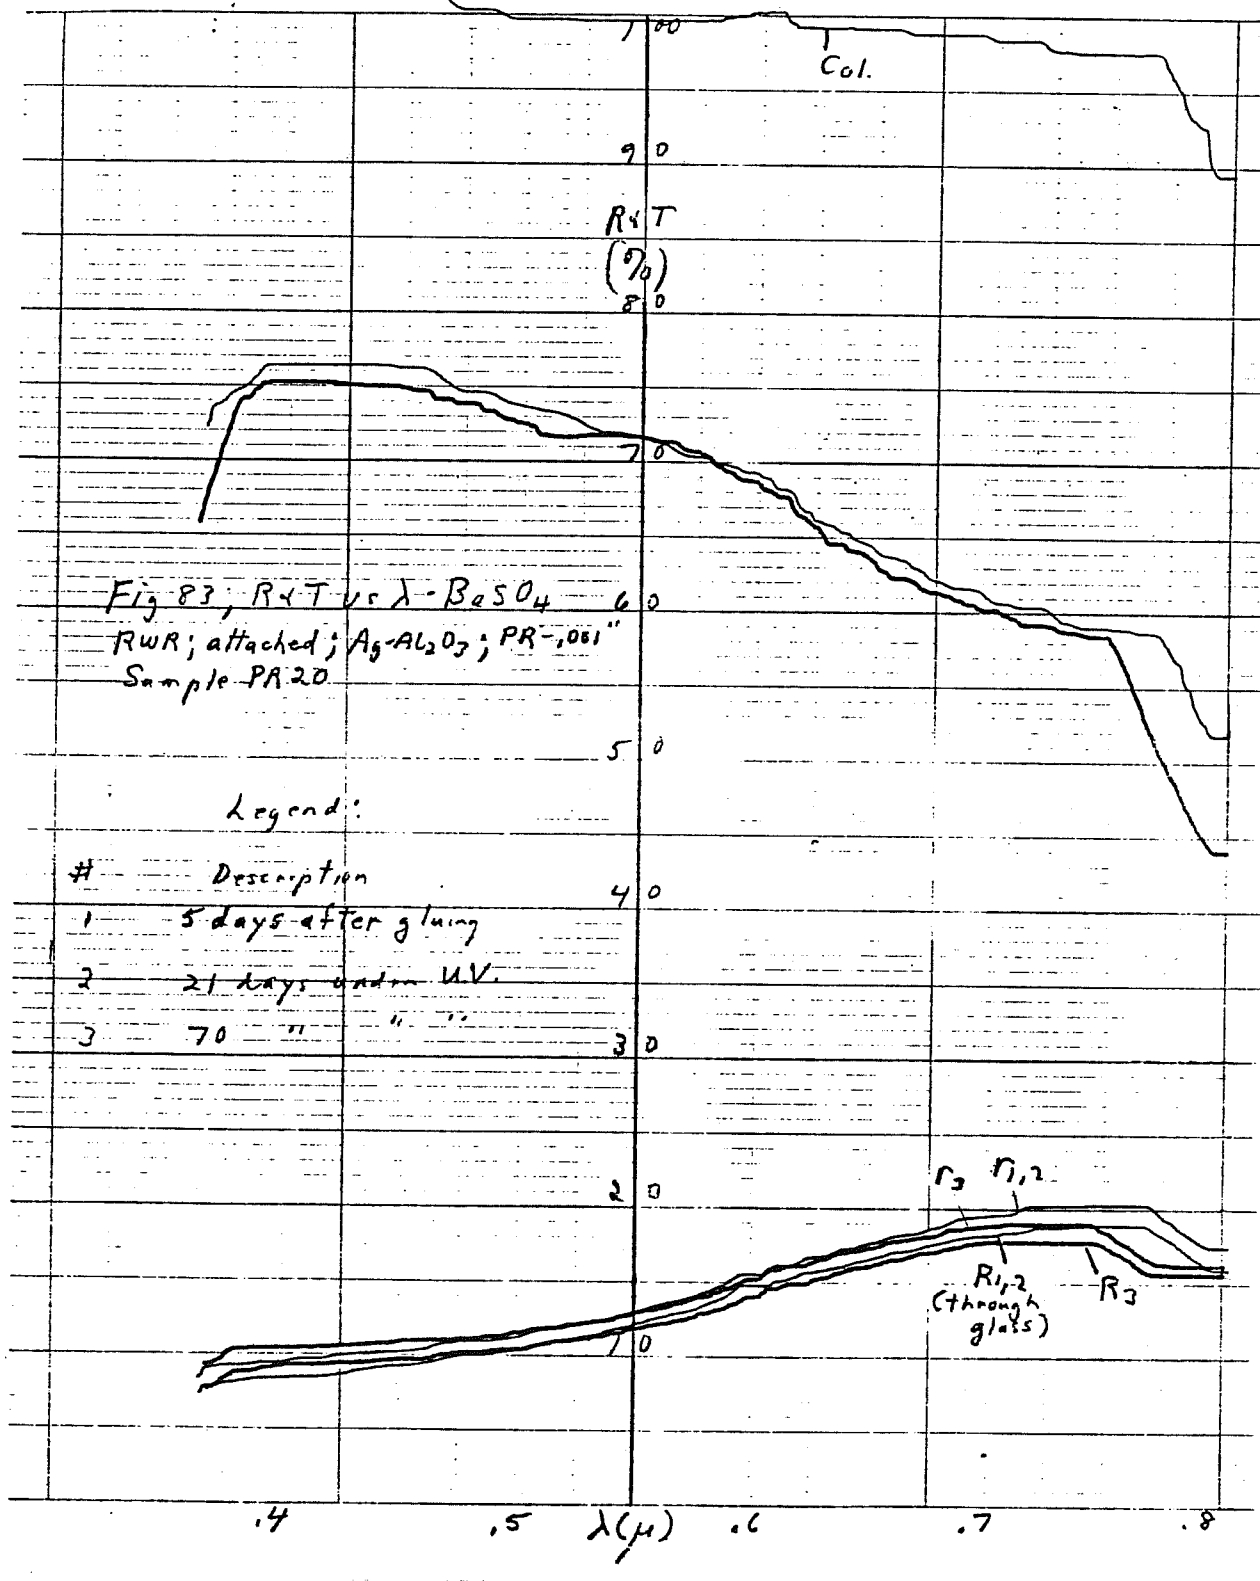 100
Col.
90
R&T
(%)
80
70
Fig 83; R&T vs λ-BaSO4
60
RWR; attached; Ag-Al2O3; PR-.061"
Sample PR20
50
Legend:
# Description
40
1 5 days after gluing
2 21 days under U.V.
3 70 " " "
30
r3 r1,2
20
R1,2
(through
glass)
R3
10
.4 .5 λ(μ) .6 .7 .8